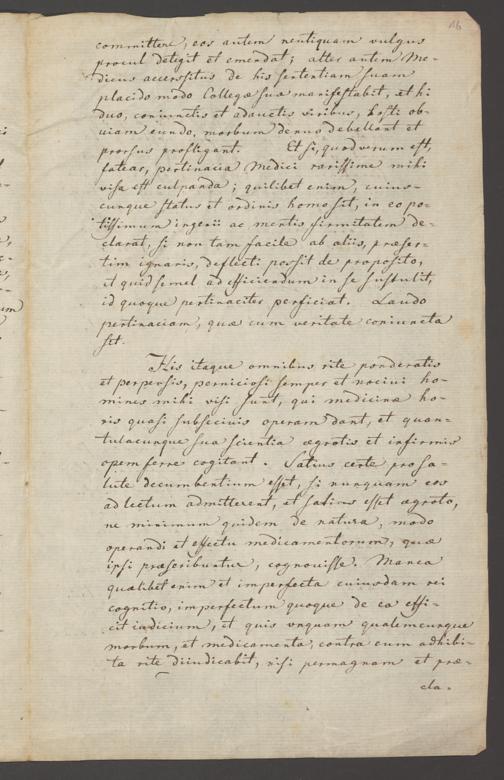 16
committere, eos autem nentiquam vulgus
procul detegit et emendat; alter autem Me-
dicus accersitus de his sententiam suam
placido modo Collegæ suæ manifestabit, et hi
duo, coniunctis et adauctis viribus, hosti ob-
viam eundo, morbum denuo debellant et
prorsus profligant. Et si, quod verum est,
fatear, pertinacia Medici rarissime mihi
visa est culpanda; quilibet enim, cuius-
cunque status et ordinis homo sit, in eo po-
tissimum ingenii ac mentis firmitatem de-
clarat, si non tam facile ab aliis, præser-
tim ignaris, deflecti possit de proposito,
et quid semel ad efficiendum in se sustulit,
id quoque pertinaciter perficiat. Laudo
pertinaciam, quæ cum veritate coniuncta
sit.
His itaque omnibus rite ponderatis
et perpensis, perniciosi semper et nocivi ho-
mines mihi visi sunt, qui medicinæ ho-
ris quasi subsecivis operam dant, et quan-
tulacunque sua scientia ægrotis et infirmis
opem ferre cogitant. Satius certe pro sa-
lute decumbentium esset, si nunquam eos
ad lectum admitterent, et satius esset ægroto,
ne minimum quidem de natura, modo
operandi et effectu medicamentorum, quæ
ipsi præscribuntur, cognovisse. Manca
quælibet enim et imperfecta cuiusdam rei
cognitio, imperfectum quoque de ea effi-
cit iudicium, et quis unquam qualemcunque
morbum, et medicamenta, contra eum adhibi-
ta rite diiudicabit, nisi permagnam et præ-
cla-